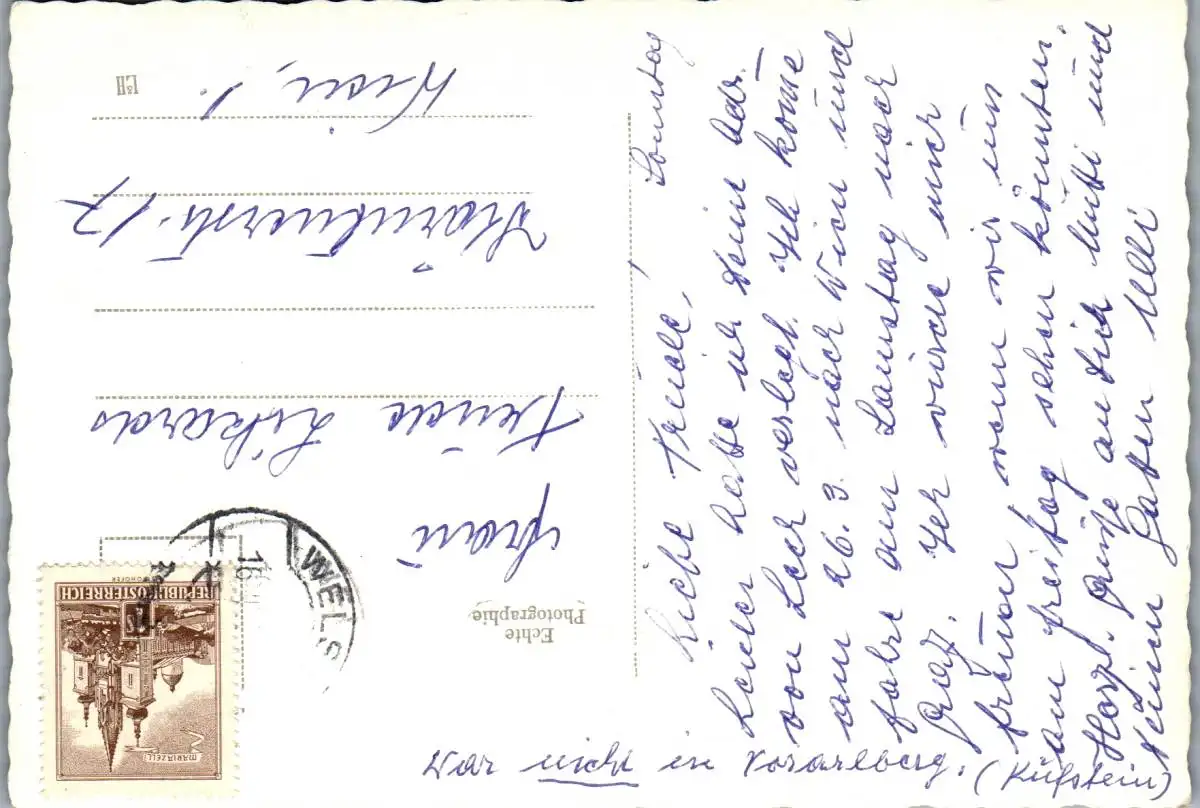 Sonntag
Liebe Trude,
Leider hatte ich Deine Adr.
von Leer verlegt. Ich komme
am 26.3. nach Wien und
fahre am Samstag nach
Graz. Ich würde mich
freuen wenn wir uns
am Freitag sehen könnten.
Herzl. Grüße an Dich Mutti und
Deinen Gatten Illi
War nicht in Vorarlberg. (Kufstein)
Frau
Trude
Wien, 1.
17
Echte
Photographie
WELS
16
REPUBLIK ÖSTERREICH
MARIAZELL